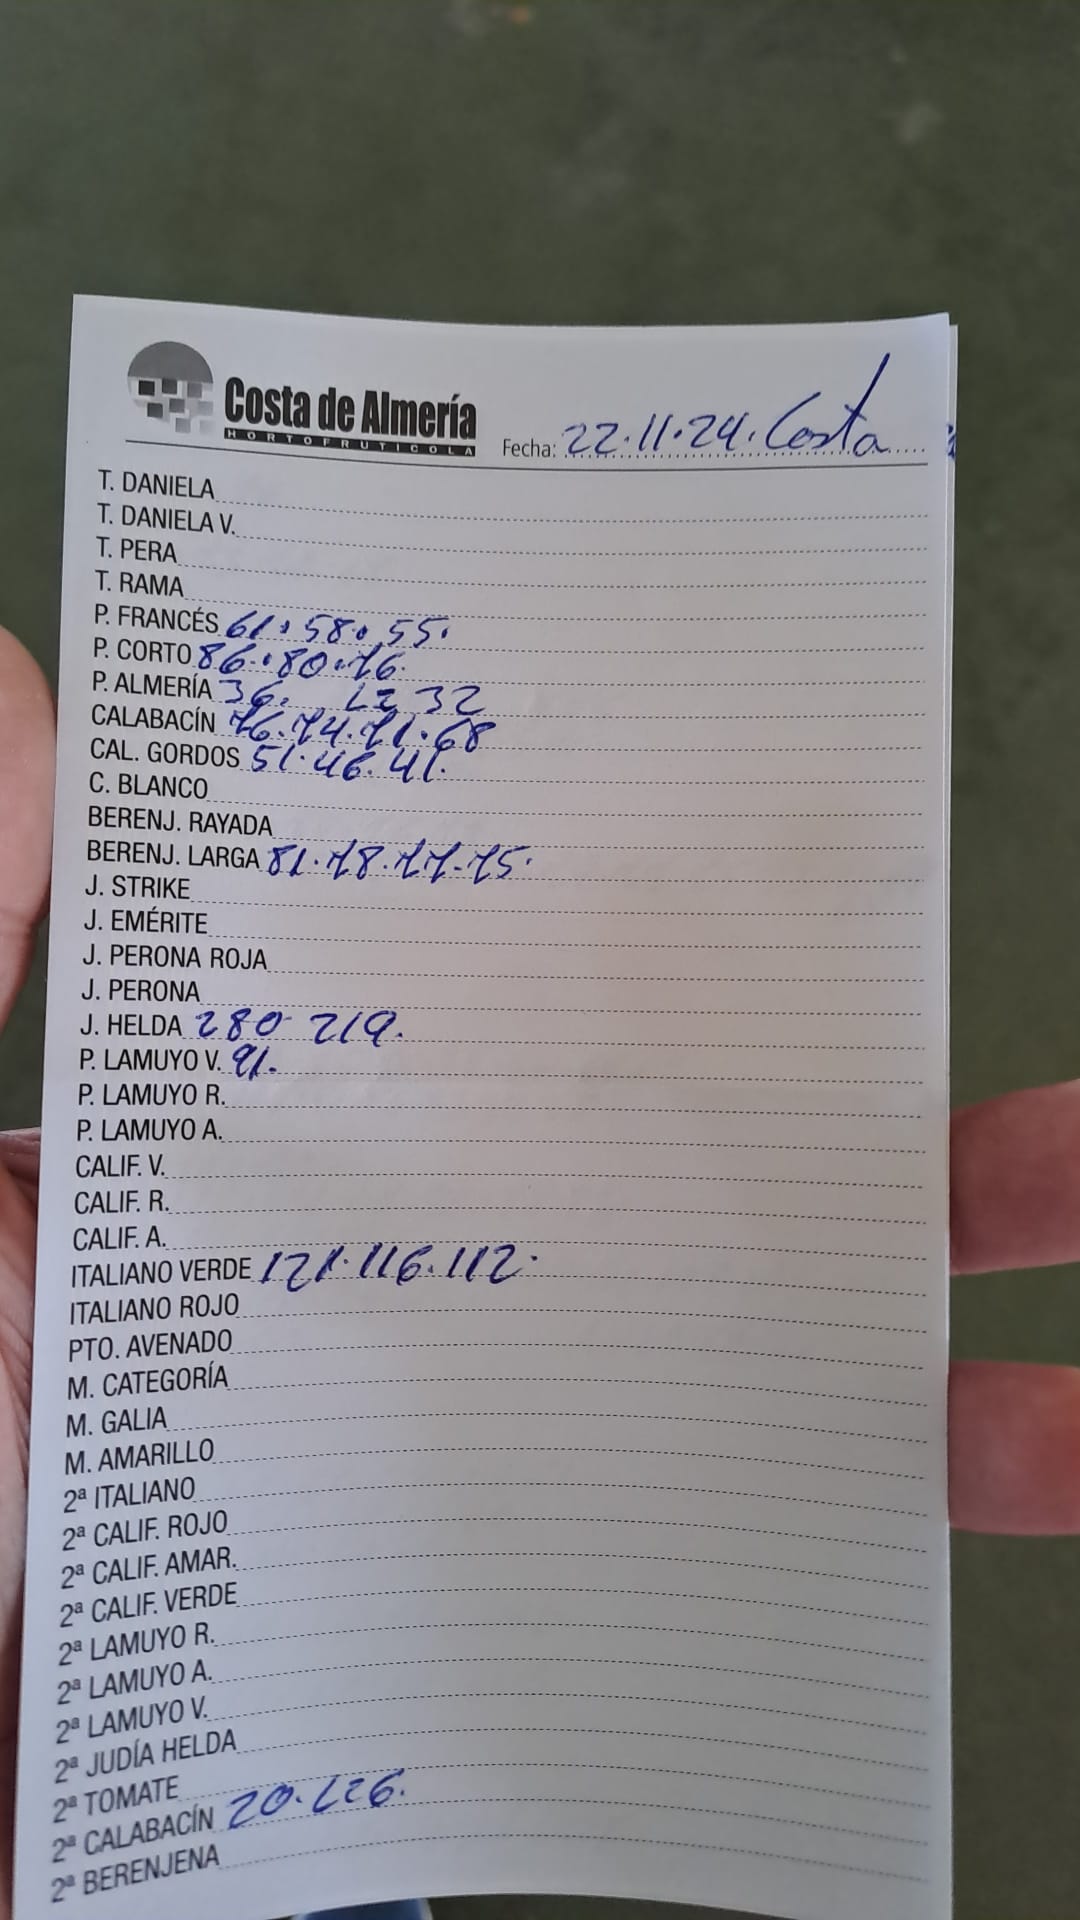 Costa de Almería
HORTOFRUTICOLA
Fecha: 22.11.24. Costa
T. DANIELA
T. DANIELA V.
T. PERA
T. RAMA
P. FRANCÉS 61. 58. 55.
P. CORTO 86. 80. 76.
P. ALMERÍA 36. LZ 32
CALABACÍN 76. 74. 71. 68
CAL. GORDOS 51. 46. 41.
C. BLANCO
BERENJ. RAYADA
BERENJ. LARGA 81. 78. 77. 75.
J. STRIKE
J. EMÉRITE
J. PERONA ROJA
J. PERONA
J. HELDA 280 219.
P. LAMUYO V. 91.
P. LAMUYO R.
P. LAMUYO A.
CALIF. V.
CALIF. R.
CALIF. A.
ITALIANO VERDE 121. 116. 112.
ITALIANO ROJO
PTO. AVENADO
M. CATEGORÍA
M. GALIA
M. AMARILLO
2ª ITALIANO
2ª CALIF. ROJO
2ª CALIF. AMAR.
2ª CALIF. VERDE
2ª LAMUYO R.
2ª LAMUYO A.
2ª LAMUYO V.
2ª JUDÍA HELDA
2ª TOMATE
2ª CALABACÍN 20.
2ª BERENJENA